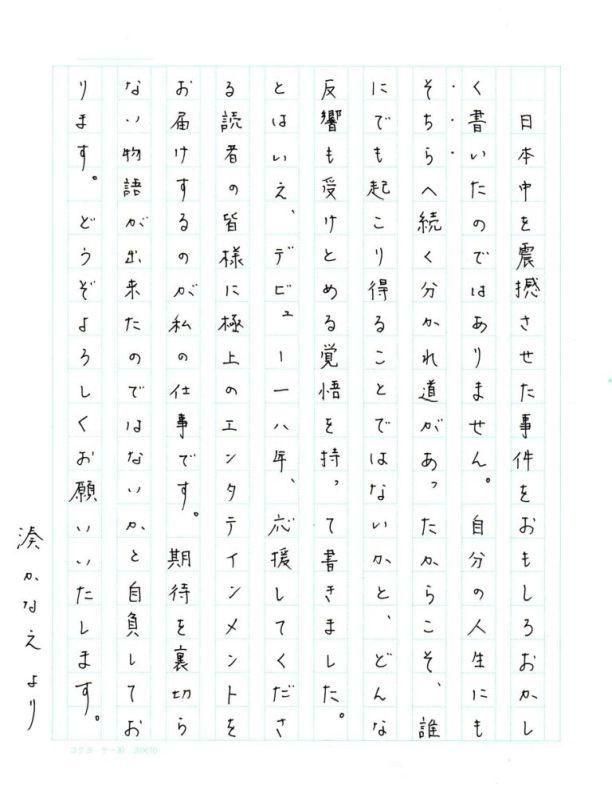 日本中を震撼させた事件をおもしろおかし
く書いたのではありません。自分の人生にも
そちらへ続く分かれ道があったからこそ、誰
にでも起こり得ることではないかと、どんな
反響も受けとめる覚悟を持って書きました。
とはいえ、デビュー一八年、応援してくださ
る読者の皆様に極上のエンタテインメントを
お届けするのが私の仕事です。期待を裏切ら
ない物語が出来たのではないかと自負してお
ります。どうぞよろしくお願いいたします。
湊かなえより